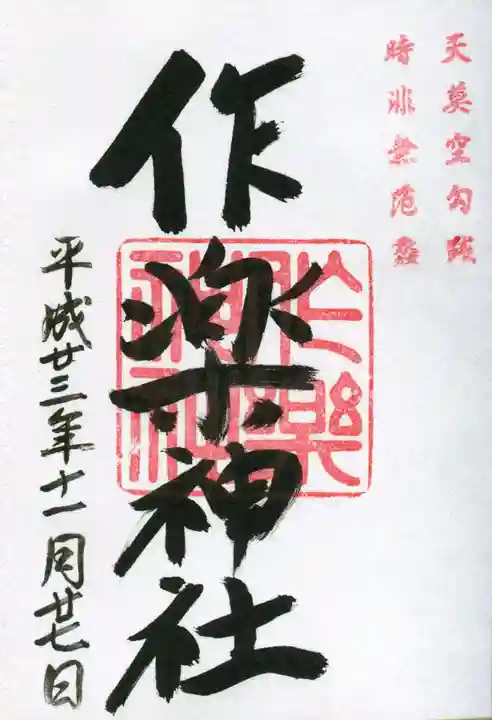 天莫空勾践
時非無范蠡
作楽神社
作楽神社
平成廿三年十一月廿七日